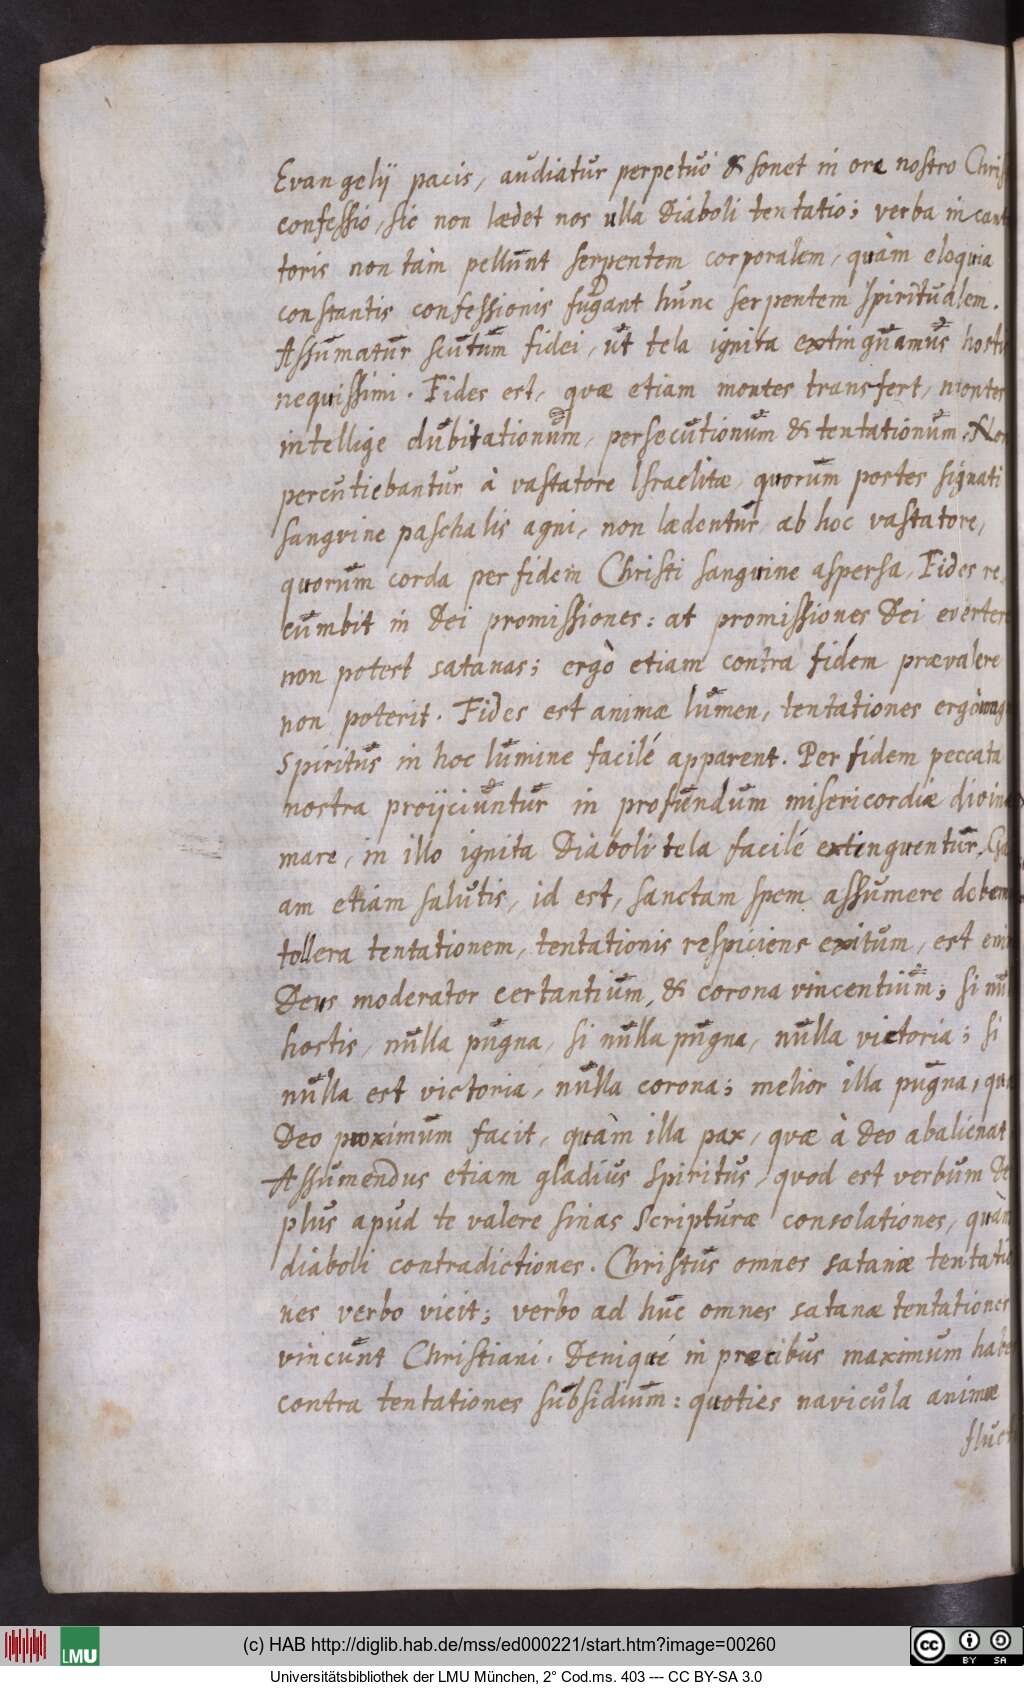 Evangelij pacis, audiatur perpetuò & sonet in ore nostro
confessio, sic non lædet nos ulla Diaboli tentatio; verba incan
toris non tàm pellunt serpentem corporalem, quàm eloquia
constantis confessionis fugant hunc serpentem spiritualem.
Assumatur scutum fidei, ut tela ignita extinguamus
nequissimi. Fides est, quæ etiam montes transfert, montes
intellige dubitationum, persecutionum & tentationum. Non
percutiebantur à vastatore Israelitæ, quorum postes signati
sangvine paschalis agni, non lædentur ab hoc vastatore,
quorum corda per fidem Christi sangvine aspersa, Fides re,
cumbit in Dei promissiones: at promissiones Dei
non potest satanas; ergò etiam contra fidem prævalere
non poterit. Fides est animæ lumen, tentationes ergò
spiritus in hoc lumine facilé apparent. Per fidem peccata
nostra proijciuntur in profundum misericordiæ
mare, in illo ignita Diaboli tela facilé extinguentur.
am etiam salutis, id est, sanctam spem assumere
tollera tentationem, tentationis respiciens exitum, est
Deus moderator certantium, & corona vincentium; si
hostis, nulla pugna, si nulla pugna, nulla victoria; si
nulla est victoria, nulla corona; melior illa pugna,
Deo proximum facit, quàm illa pax, quæ à Deo abalienat
Assumendus etiam gladius spiritus, quod est verbum
plus apud te valere sinas Scripturæ consolationes, quàm
diaboli contradictiones. Christus omnes satanæ tentatio
nes verbo vicit; verbo ad huc omnes satanæ tentationes
vincunt Christiani. Deniqué in precibus maximum
contra tentationes subsidium: quoties navicula animæ
fluct
(c) HAB http://diglib.hab.de/mss/ed000221/start.htm?image=00260
LMU
cc BY SA
Universitätsbibliothek der LMU München, 2° Cod.ms. 403 --- CC BY-SA 3.0